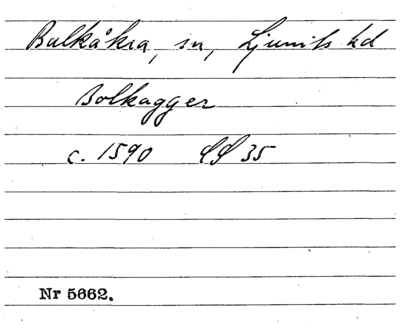 Balkåkra, sn, Ljunits hd
Bolkagger
c. 1590 SS 35
Nr 5662.